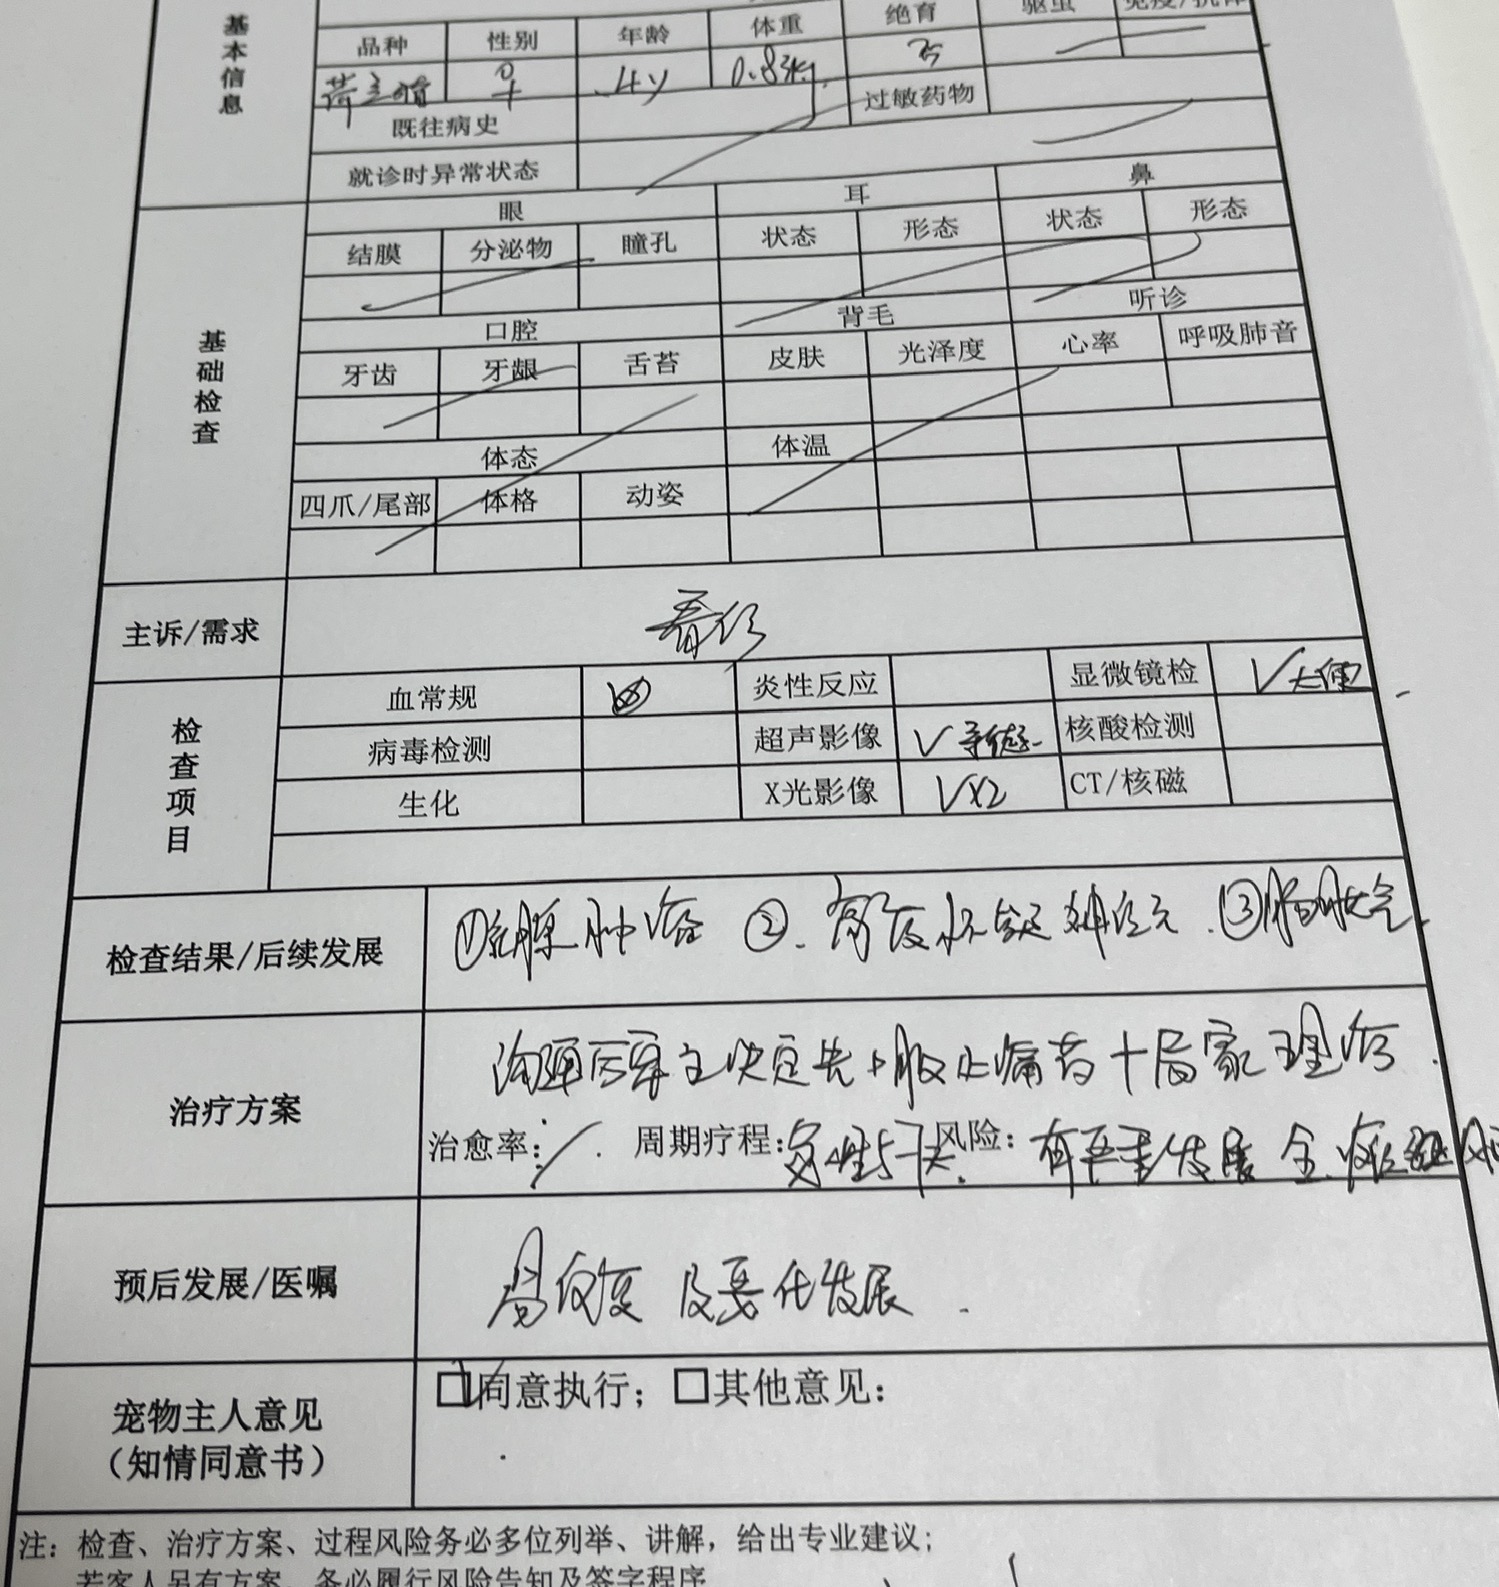 基本信息
品种 性别 年龄 体重 绝育 驱虫 免疫/抗体
♀ 4y 0.83kg 否
既往病史 过敏药物
就诊时异常状态
基础检查
眼 耳 鼻
结膜 分泌物 瞳孔 状态 形态 状态 形态
口腔 背毛 听诊
牙齿 牙龈 舌苔 皮肤 光泽度 心率 呼吸肺音
体态 体温
四爪/尾部 体格 动姿
主诉/需求 看诊
检查项目
血常规 炎性反应 显微镜检 √大便
病毒检测 超声影像 √ 核酸检测
生化 X光影像 √X2 CT/核磁
检查结果/后续发展 ①乳腺肿瘤 ②. 高度怀疑 ③肠胀气.
治疗方案 沟通后宠主决定先口服止痛药+居家理疗.
治愈率:/. 周期疗程:定性5-7天. 风险: 有恶变发展
预后发展/医嘱 易反复及恶化发展.
宠物主人意见 ☑同意执行; □其他意见:
(知情同意书)
注: 检查、治疗方案、过程风险务必多位列举、讲解,给出专业建议;
若客人另有方案,务必履行风险告知及签字程序